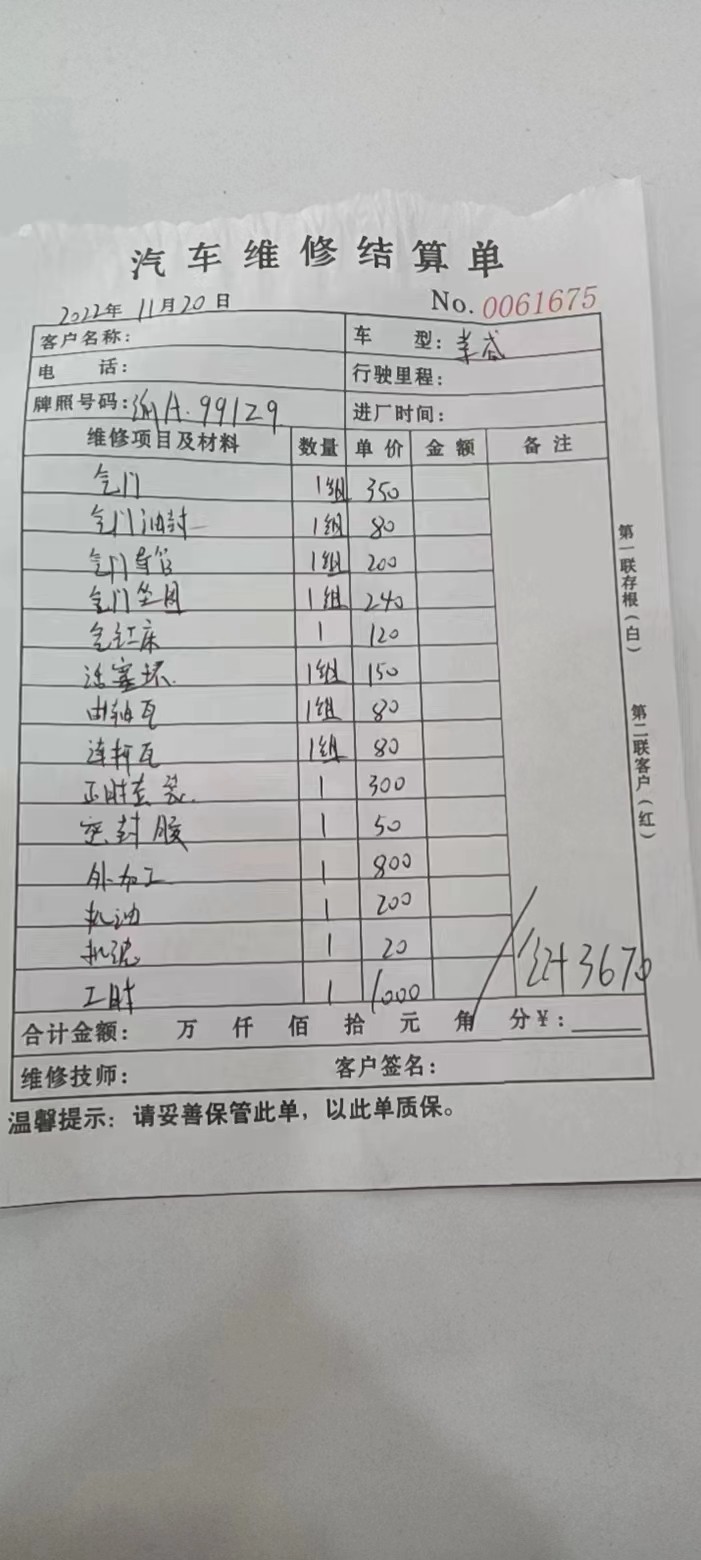 汽车维修结算单
2022年 11月20日 No. 0061675
客户名称: 车 型:
电 话: 行驶里程:
牌照号码:渝A·99129 进厂时间:
维修项目及材料 数量 单价 金额 备注
气门 1组 350
气门油封 1组 80
气门导管 1组 200
气门坐圈 1组 240
气缸床 1 120
活塞环 1组 150
曲轴瓦 1组 80
连杆瓦 1组 80
正时套装 1 300
密封胶 1 50
外加工 1 800
机油 1 200
机滤 1 20
工时 1 1000
合计3670
合计金额: 万 仟 佰 拾 元 角 分¥:
维修技师: 客户签名:
温馨提示:请妥善保管此单,以此单质保。
第一联存根(白)
第二联客户(红)